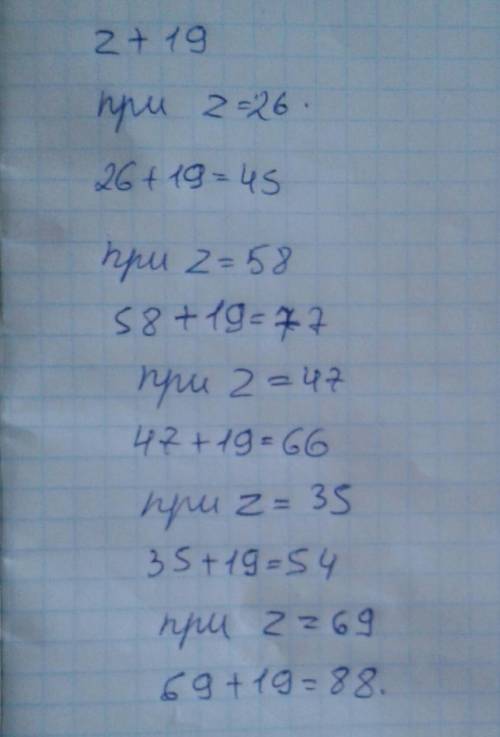 z + 19
при z=26.
26+19=45
при z=58
58+19=77
при z=47
47+19=66
при z=35
35+19=54
при z=69
69+19=88.